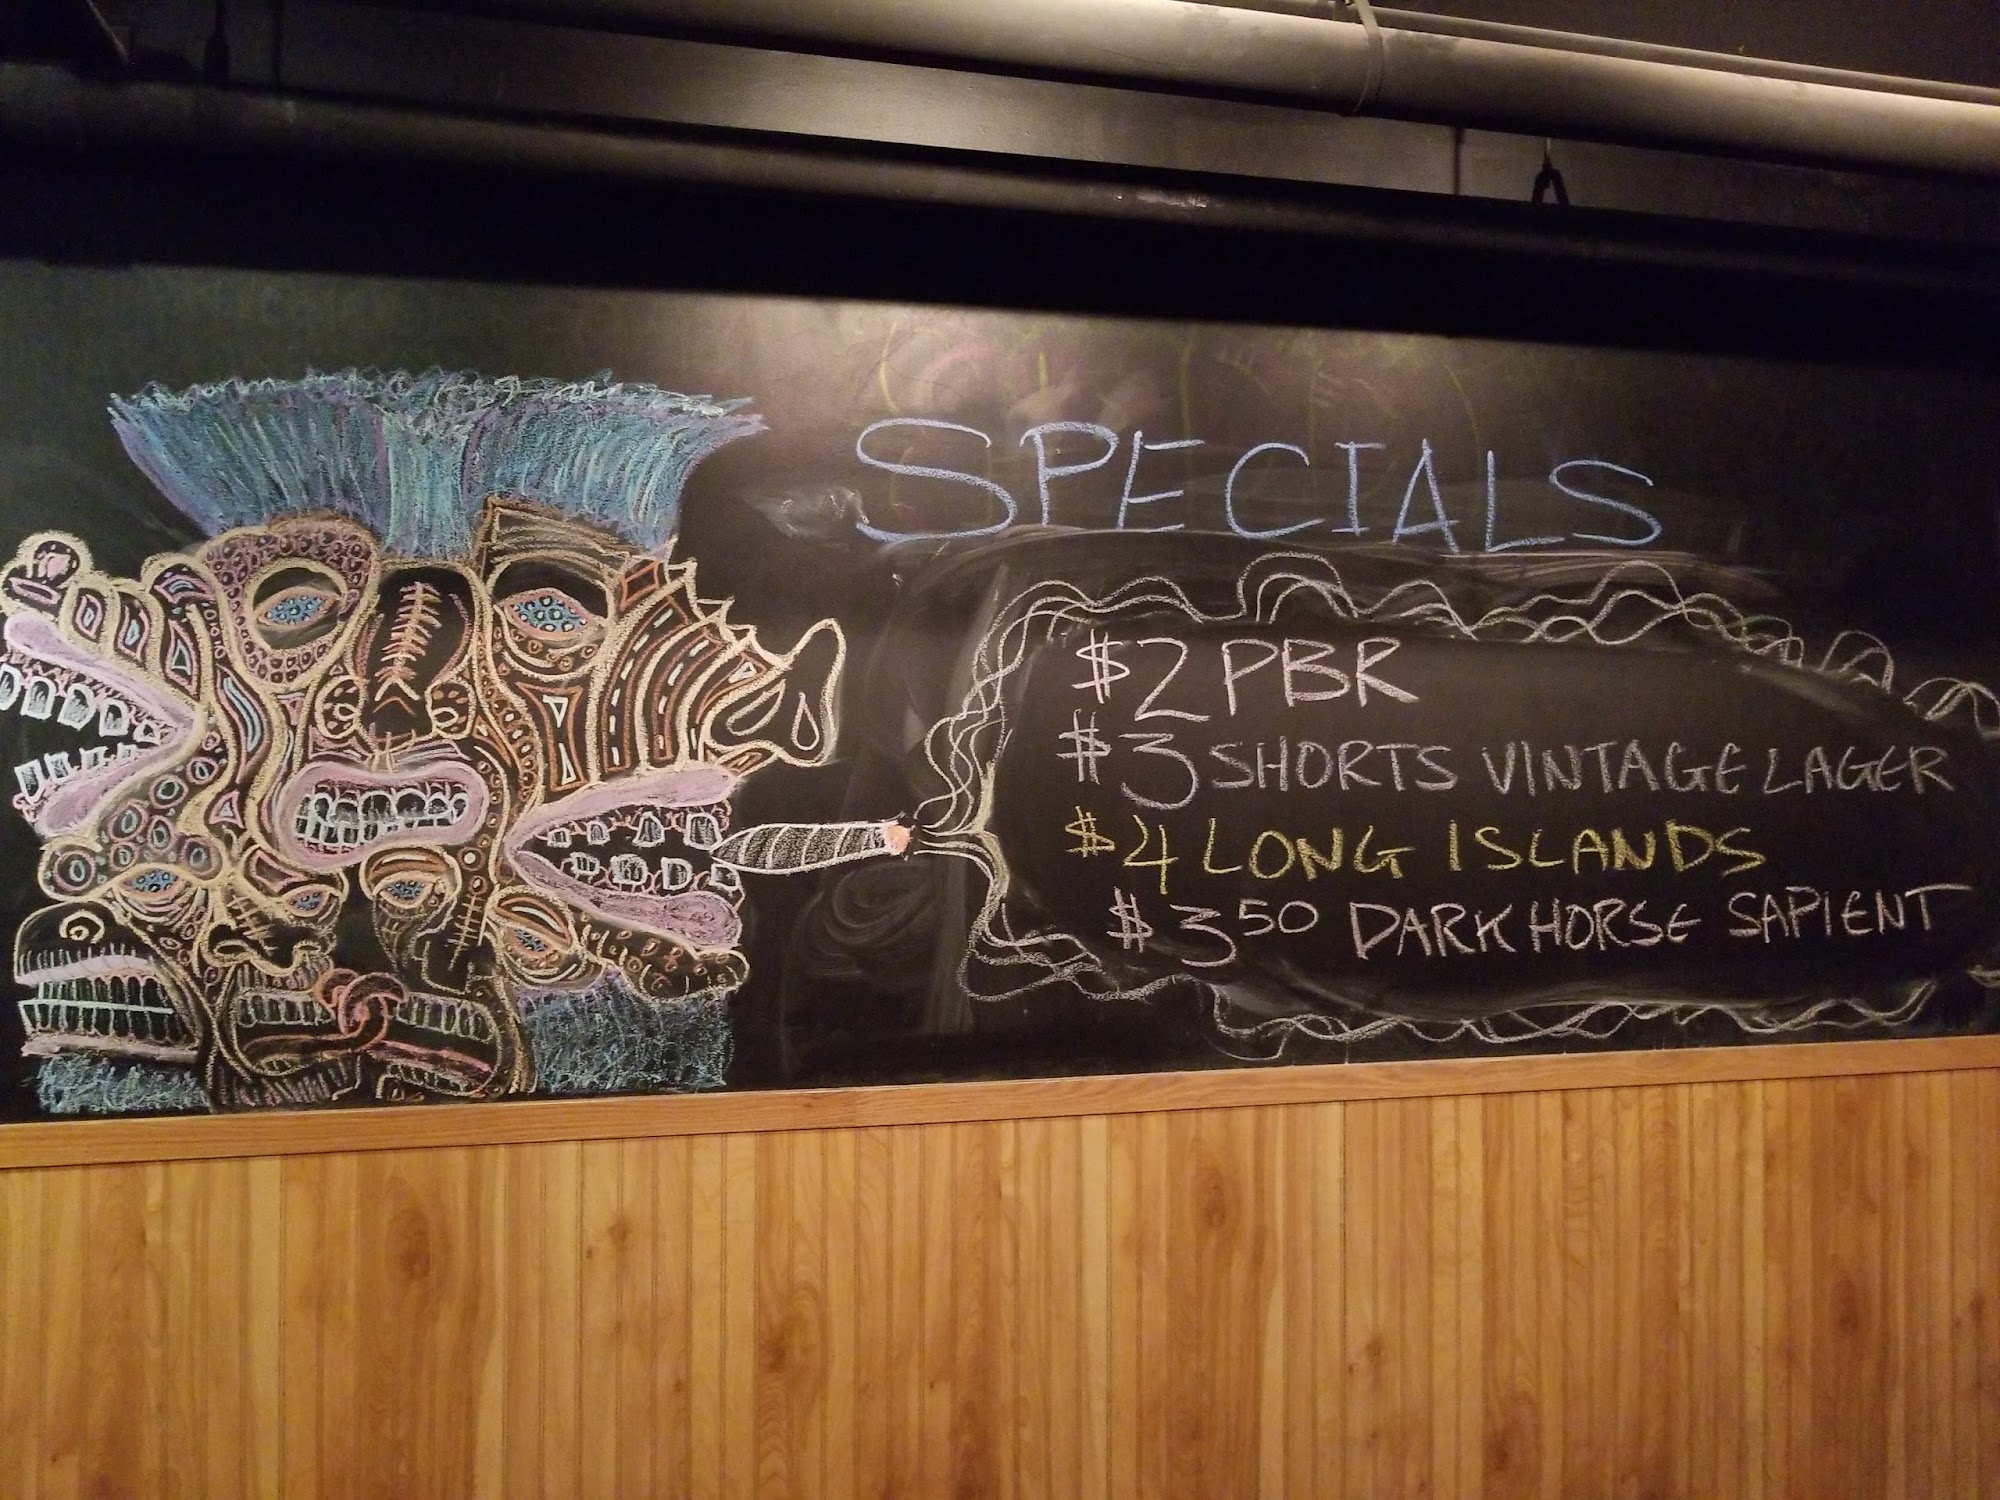 SPECIALS
$2 PBR
$3 SHORTS VINTAGE LAGER
$4 LONG ISLANDS
$3 50 DARK HORSE SAPIENT